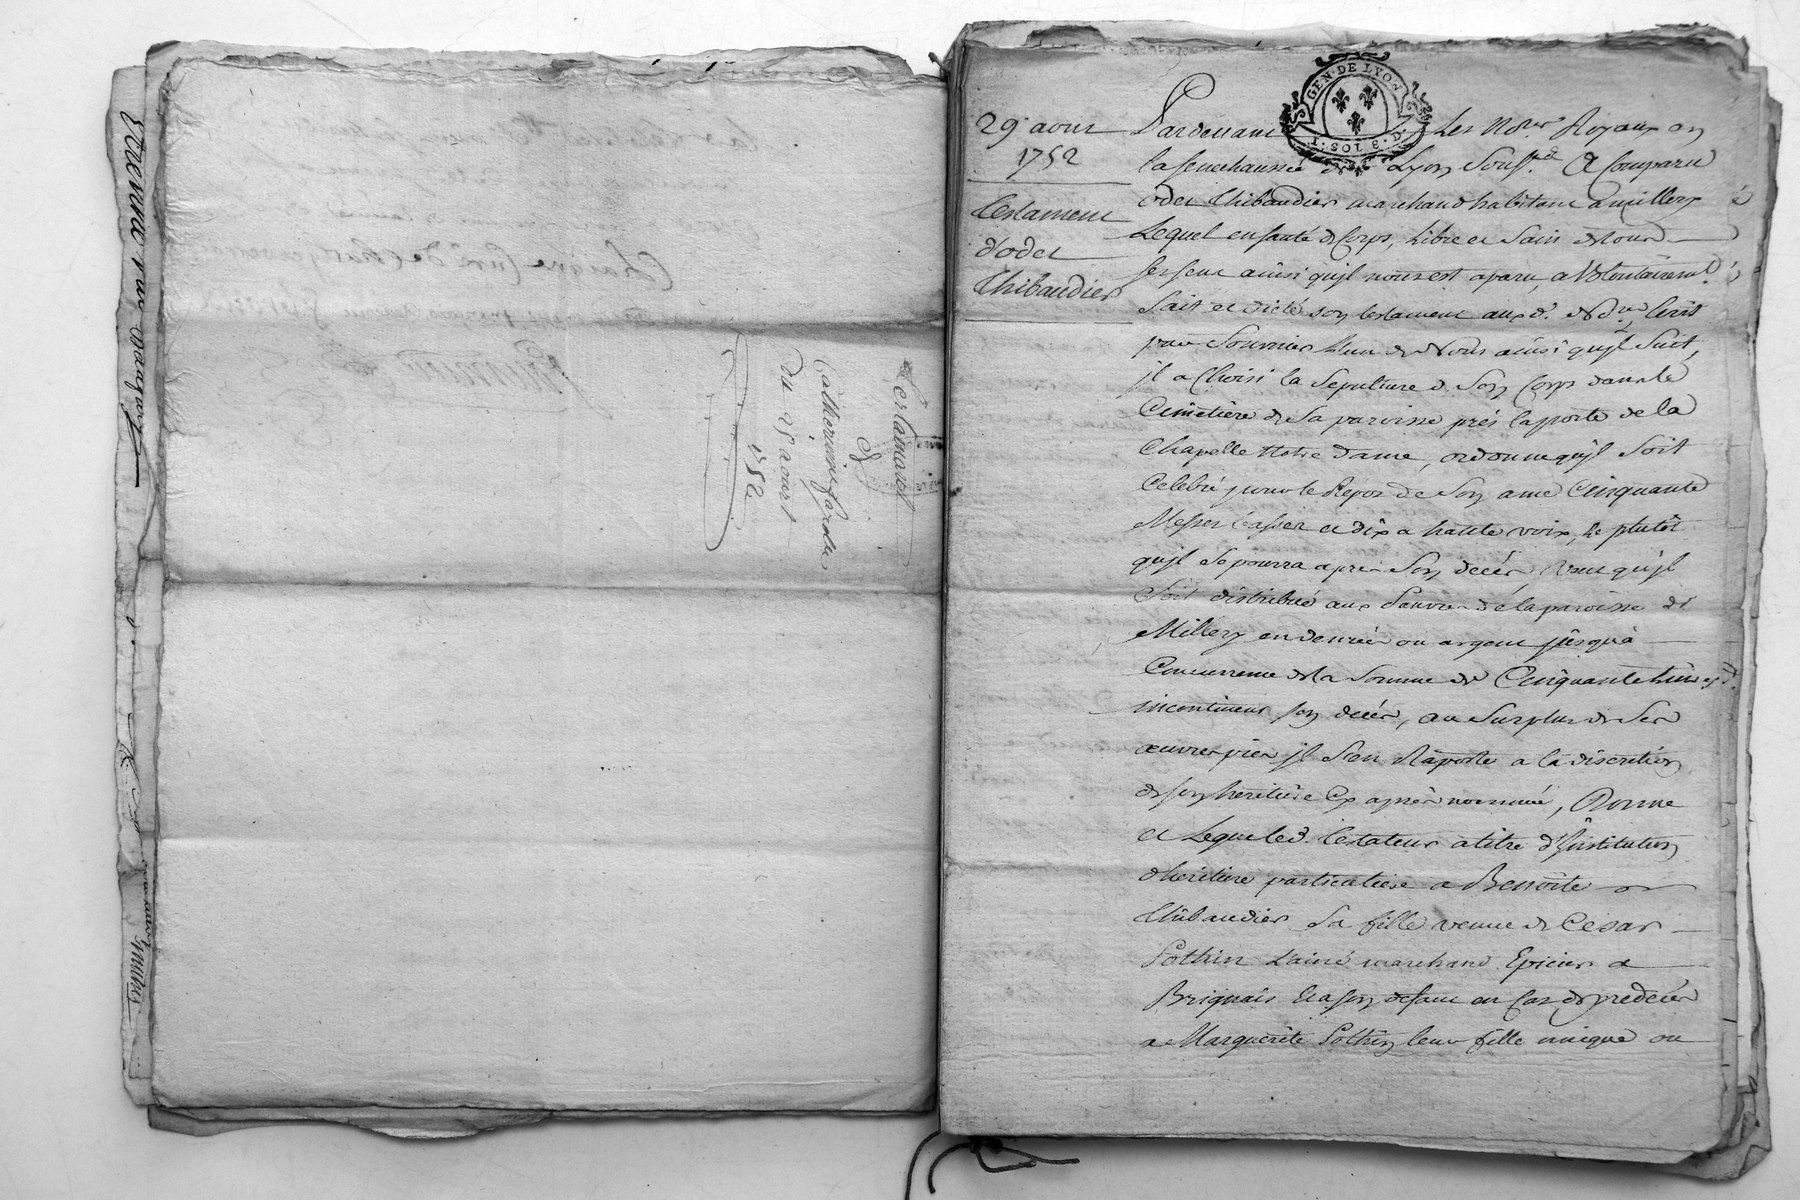 Testament
de
Catherine
du 25 aoust
1752
GEN. DE LYON
29 aoust
1752
Testament
d'odet
Thibaudier
Pardevant Les Nores Royaux en
la senechaussée de Lyon Souss.nés a Comparu
odet Thibaudier marchand habitant a millery
Lequel en santé de Corps, Libre et Sain de tous
ses sens ainsi quil nous est aparu, a Volontairemt.
fait et dicté son testament auxd. Nores Ecrit
par l'un de Nous ainsi quil suit,
il a Choisi la Sepulture de Son Corps dans le
Cimetière de Sa paroisse prés la porte de la
Chapelle Notre dame, ordonne quil Soit
Celebré pour le Repos de Son ame Cinquante
Messes basses et dix a hautte voix, le plutôt
quil Se pourra aprés Son decés, Veut quil
Soit distribué aux Pauvres de la paroisse de
Millery en denrées ou argent jusqu'à
Concurrence de la Somme de Cinquante livres
incontinent son decés, au Surplus de Ses
œuvres pies il s'en Raporte a la discretion
de son heritière Cy aprés nommée, Donne
et Legue led. testateur à titre d'Institution
d'heritiere particuliere a Benoite
Thibaudier Sa fille veuve de César
Pothin L'ainé marchand Epicier a
Brignais Et a son defaut en Cas de predecés
a Marguerite Pothin leur fille unique ou